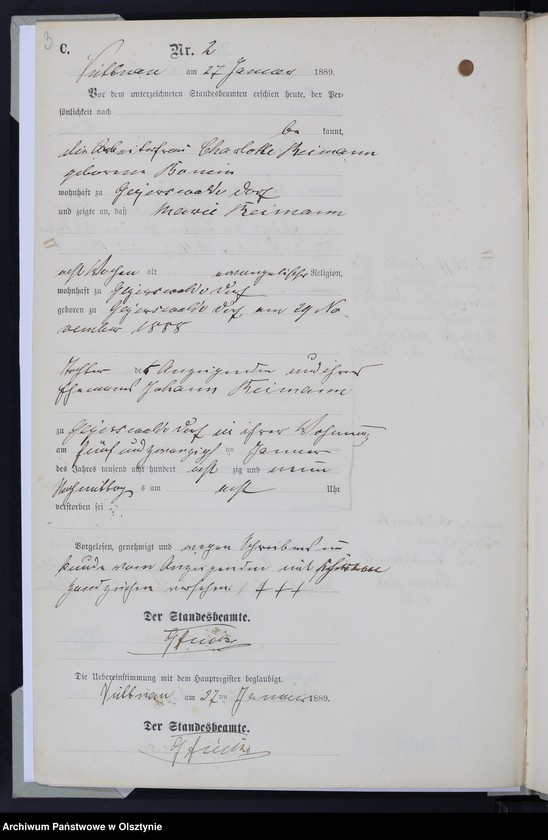 3
C. Nr. 2
am 27 Januar 1889.
Vor dem unterzeichneten Standesbeamten erschien heute, der Per-
sönlichkeit nach
be kannt,
die Arbeiterfrau Charlotte Reimann
geborene
wohnhaft zu Geyerswalde Dorf
und zeigte an, daß Marie Reimann
acht Wochen alt evangelischer Religion,
wohnhaft zu Geyerswalde Dorf
geboren zu Geyerswalde Dorf am 29 No-
vember 1888
Tochter der Anzeigenden und ihres
Ehemanns Johann Reimann
zu Geyerswalde Dorf in ihrer Wohnung
am fünf und zwanzigsten Januar
des Jahres tausend acht hundert acht zig und neun
Nachmittags um acht Uhr
verstorben sei
Vorgelesen, genehmigt und wegen Schreibens un-
kunde vom Anzeigenden mit
Handzeichen versehen +++
Der Standesbeamte.
Die Uebereinstimmung mit dem Hauptregister beglaubigt.
am 27ten Januar 1889.
Der Standesbeamte.
Archiwum Państwowe w Olsztynie